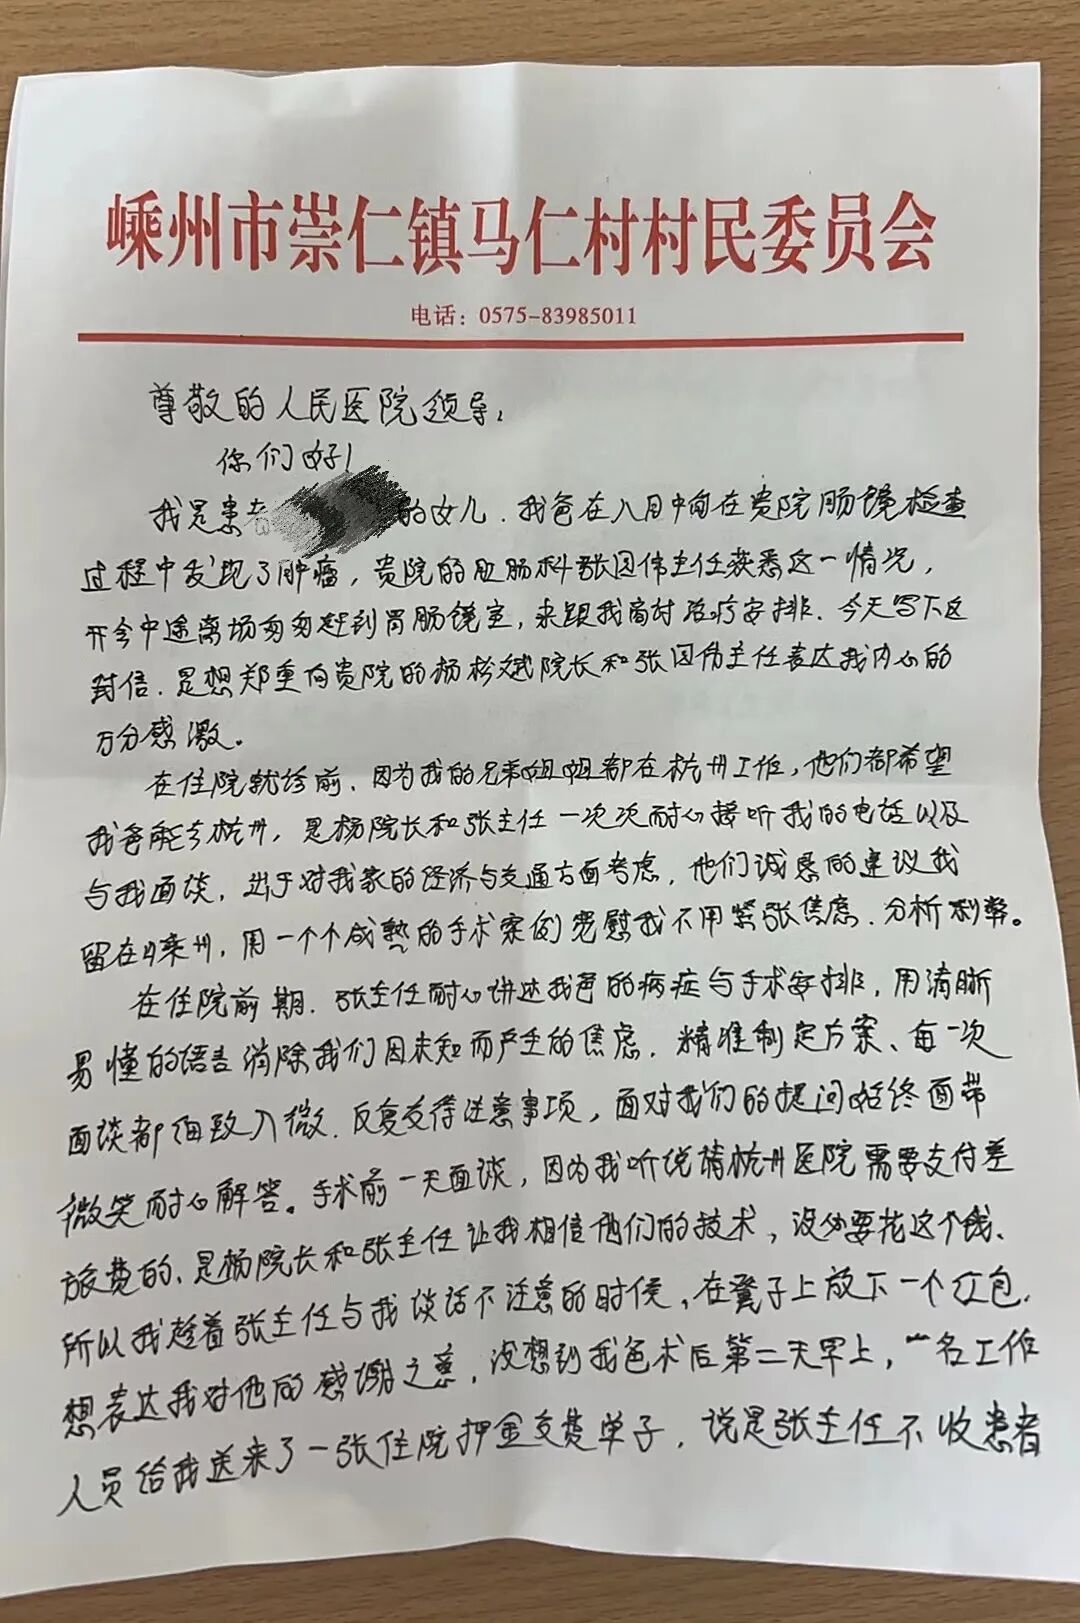 嵊州市崇仁镇马仁村村民委员会
电话：0575-83985011
尊敬的人民医院领导：
你们好！
我是患者的女儿．我爸在八月中旬在贵院肠镜检查
过程中发现了肿瘤，贵院的肛肠科张国伟主任获悉这一情况，
开会中途离场匆匆赶到胃肠镜室，来跟我商讨治疗安排．今天写下这
封信．是想郑重向贵院的杨松斌院长和张国伟主任表达我内心的
万分感激。
在住院就诊前．因为我的兄弟姐姐都在杭州工作，他们都希望
我爸能去杭州，是杨院长和张主任一次次耐心接听我的电话以及
与我面谈．出于对我家的经济与交通方面考虑．他们诚恳的建议我
留在嵊州，用一个个成熟的手术案例宽慰我不用紧张焦虑．分析利弊。
在住院前期．张主任耐心讲述我爸的病症与手术安排，用清晰
易懂的语言消除我们因未知而产生的焦虑．精准制定方案、每一次
面谈都细致入微．反复交待注意事项，面对我们的提问始终面带
微笑耐心解答。手术前一天面谈，因为我听说请杭州医院需要支付差
旅费的、是杨院长和张主任让我相信他们的技术，没必要花这个钱、
所以我趁着张主任与我谈话不注意的时候，在凳子上放下一个红包．
想表达我对他的感谢之意．没想到我爸术后第二天早上，一名工作
人员给我送来了一张住院押金交费单子．说是张主任不收患者